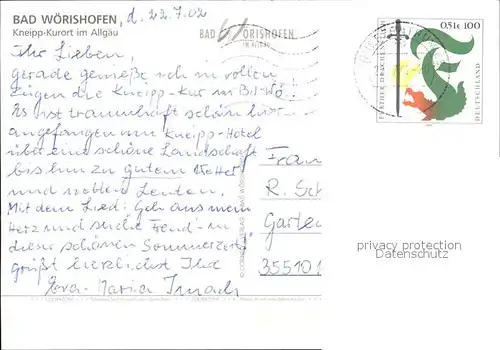 BAD WÖRISHOFEN, d. 22.7.02
Kneipp-Kurort im Allgäu
Ihr Lieben,
gerade genieße ich in vollen
Zügen die Kneipp-Kur in Bad-Wö.
Es ist traumhaft schön hier
angefangen vom Kneipp-Hotel
über eine schöne Landschaft
bis hin zu gutem Wetter
und netten Leuten.
Mit dem Lied: Geh aus mein
Herz und suche Freud - in
dieser schönen Sommerzeit,
grüßt herzlichst Ihre
Eva-Maria
BAD WÖRISHOFEN
IM ALLGÄU
FURTHER DRACHENSTICH
0,51€ 100
DEUTSCHLAND
Frau
R. Sch
Garten
35510
privacy protection
Datenschutz